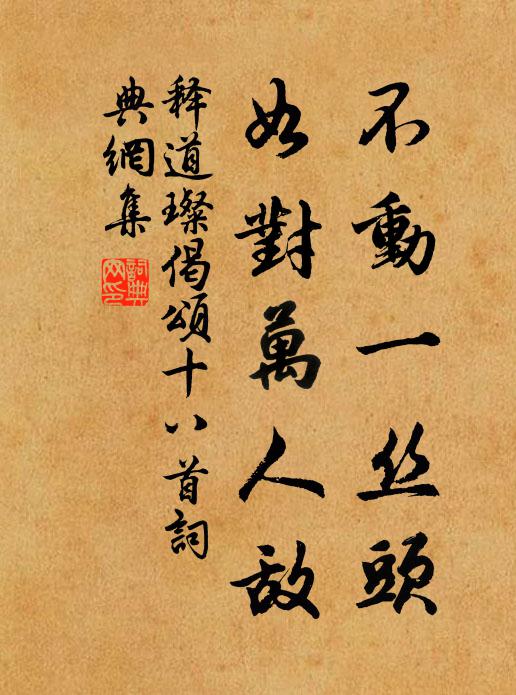 不動一丝頭
如對萬人敵
释道璨偈頌十八首詞
典網集
詞典
网印